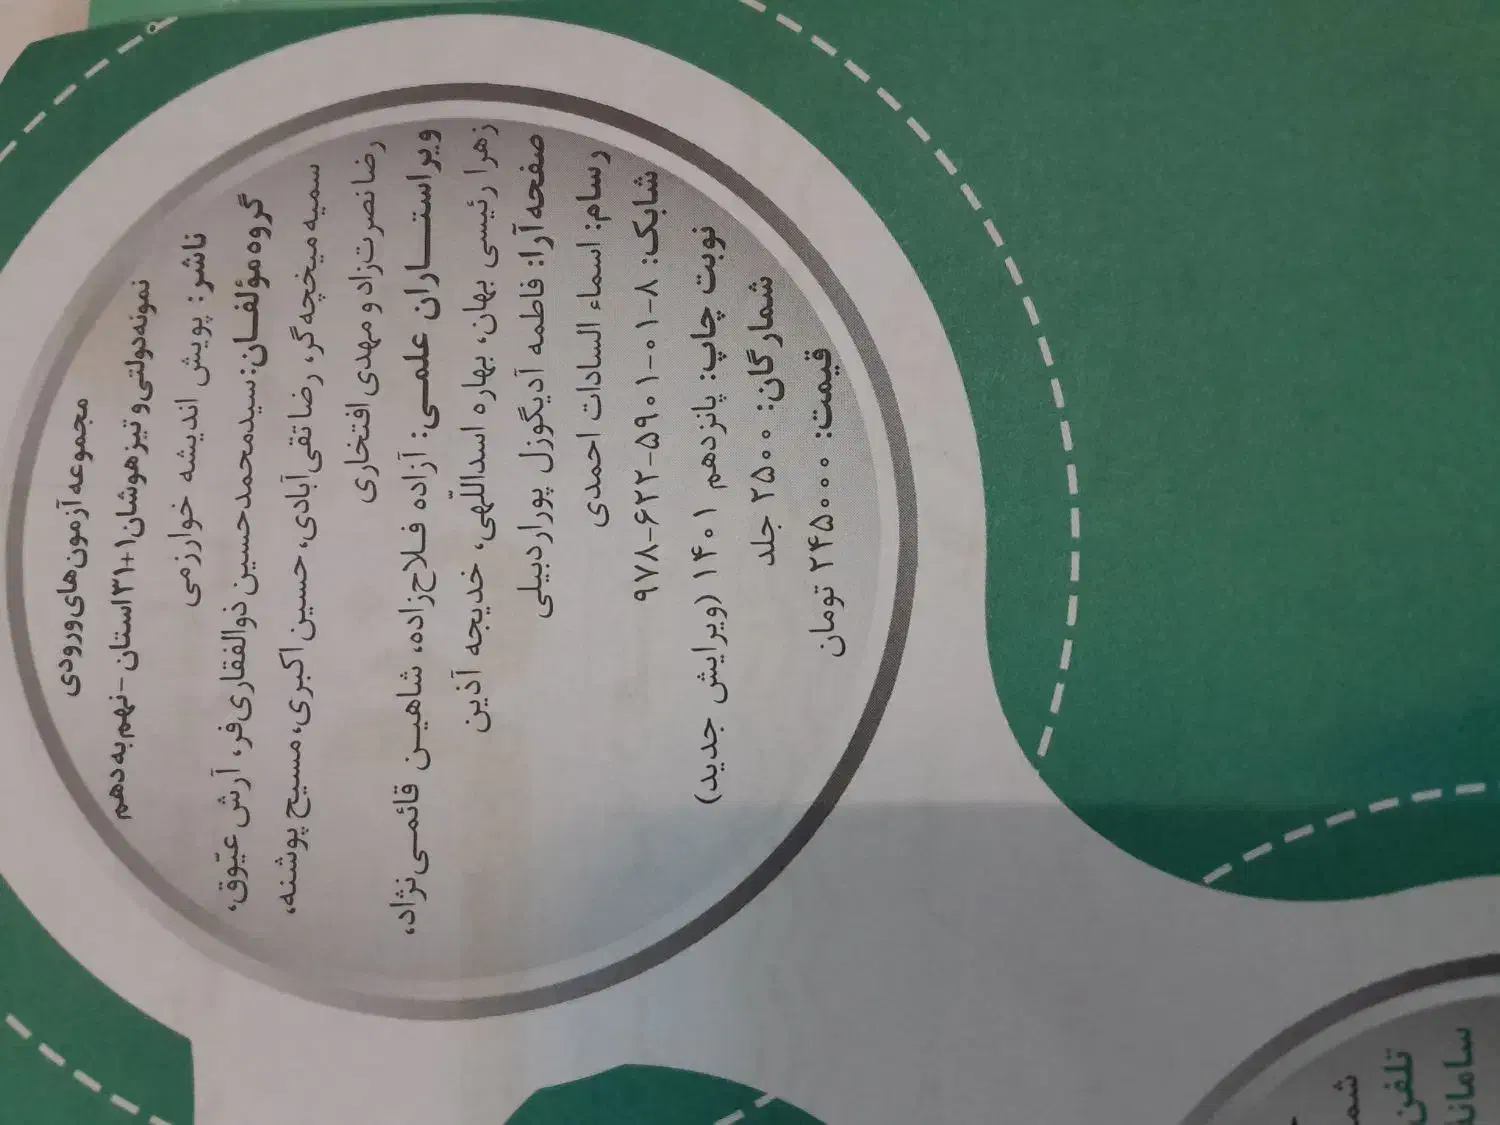 مجموعه آزمون‌های ورودی
نمونه‌دولتی و تیزهوشان ۱+۳۱ استان - نهم به دهم
ناشر: پویش اندیشه خوارزمی
گروه مؤلفـان: سیدمحمدحسین ذوالفقاری‌فر، آرش عیّوق،
سمیه میخچه‌گر، رضا تقی‌آبادی، حسین اکبری، مسیح پوشنه،
رضا نصرت‌زاد و مهدی افتخاری
ویراستـاران علمـی: آزاده فـلاح‌زاده، شاهیـن قائمـی‌نژاد،
زهرا رئیسی بهان، بهاره اسداللّهی، خدیجه آذین
صفحه‌آرا: فاطمه آدیگوزل پوراردبیلی
رسام: اسماء السادات احمدی
شابک: ۸-۰۱-۵۹۰۱-۶۲۲-۹۷۸
نوبت چاپ: پانزدهم ۱۴۰۱ (ویرایش جدید)
شمارگان: ۲۵۰۰ جلد
قیمت: ۲۴۵۰۰۰ تومان
شم
تلفن
سامانه